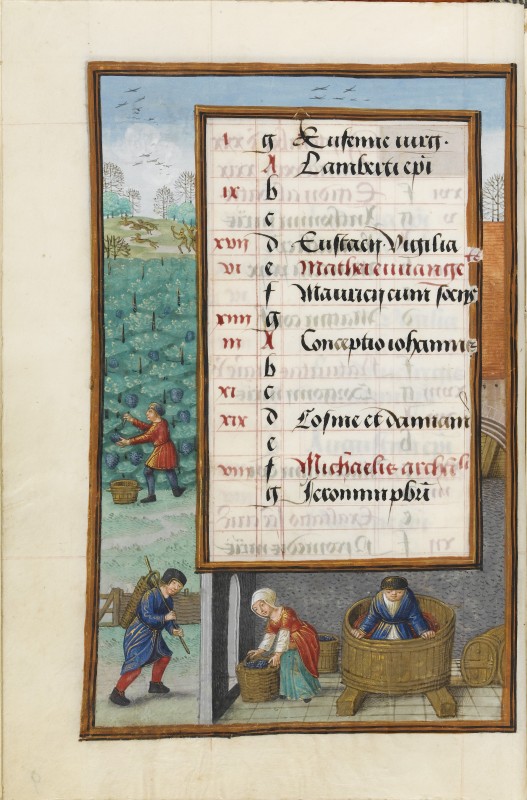 i g Eufemie uirg.
A Lamberti epi
ix b
c
xvii d Eustacij Vigilia
vi e Mathei euange
f Mauricij cum socijs
xiiii g
iii A Conceptio iohannis
b
xi c
xix d Cosme et damiani
e
viii f Michaelis
g Jeronimi pbri